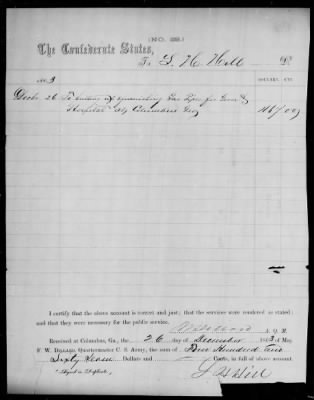 (NO. 22.)
The Confederate States,
To L. H. Hill Dr.
DOLLARS. CTS.
No. 3
Decbr 26 To furnishing Gas Pipes for Gen
Hospital Columbus Geo 467 00
I certify that the above account is correct and just; that the services were rendered as stated;
and that they were necessary for the public service.
A. Q. M.
Received at Columbus, Ga., the 26 day of December 1863, of Maj.
F. W. DILLARD, Quartermaster C. S. Army, the sum of Four Hundred and
Sixty Seven Dollars and Cents, in full of above account.
(Signed in Duplicate.)
L H Hill